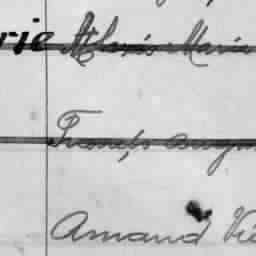 rie Alexis Marie
François Augu
Amand Vic